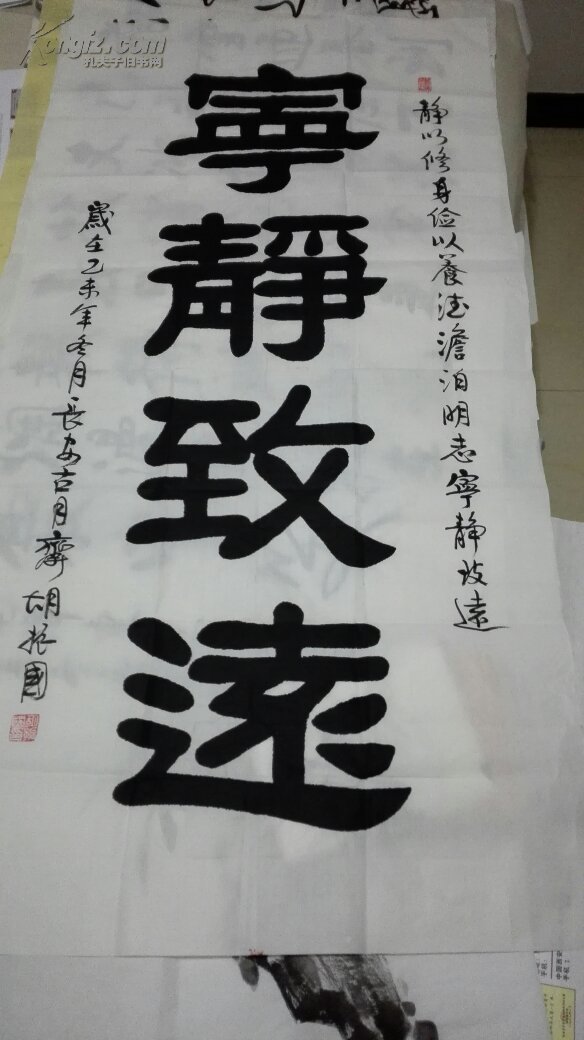 静以修身俭以養德澹泊明志寧静致遠
寧靜致遠
歲在乙未年冬月長安古月齋胡振國
Kongfz.com
孔夫子旧书网